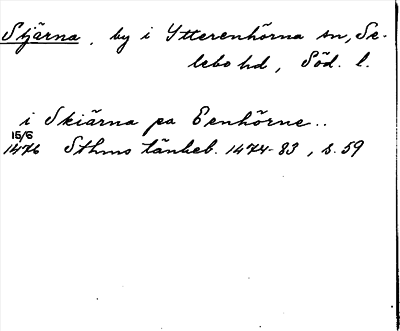 Stjärna, by i Ytterenhörna sn, Se-
lebo hd, Söd. l.
i Skiärna pa Eenhörne..
15/6
1476 Sthms tänkeb. 1474-83, s. 59